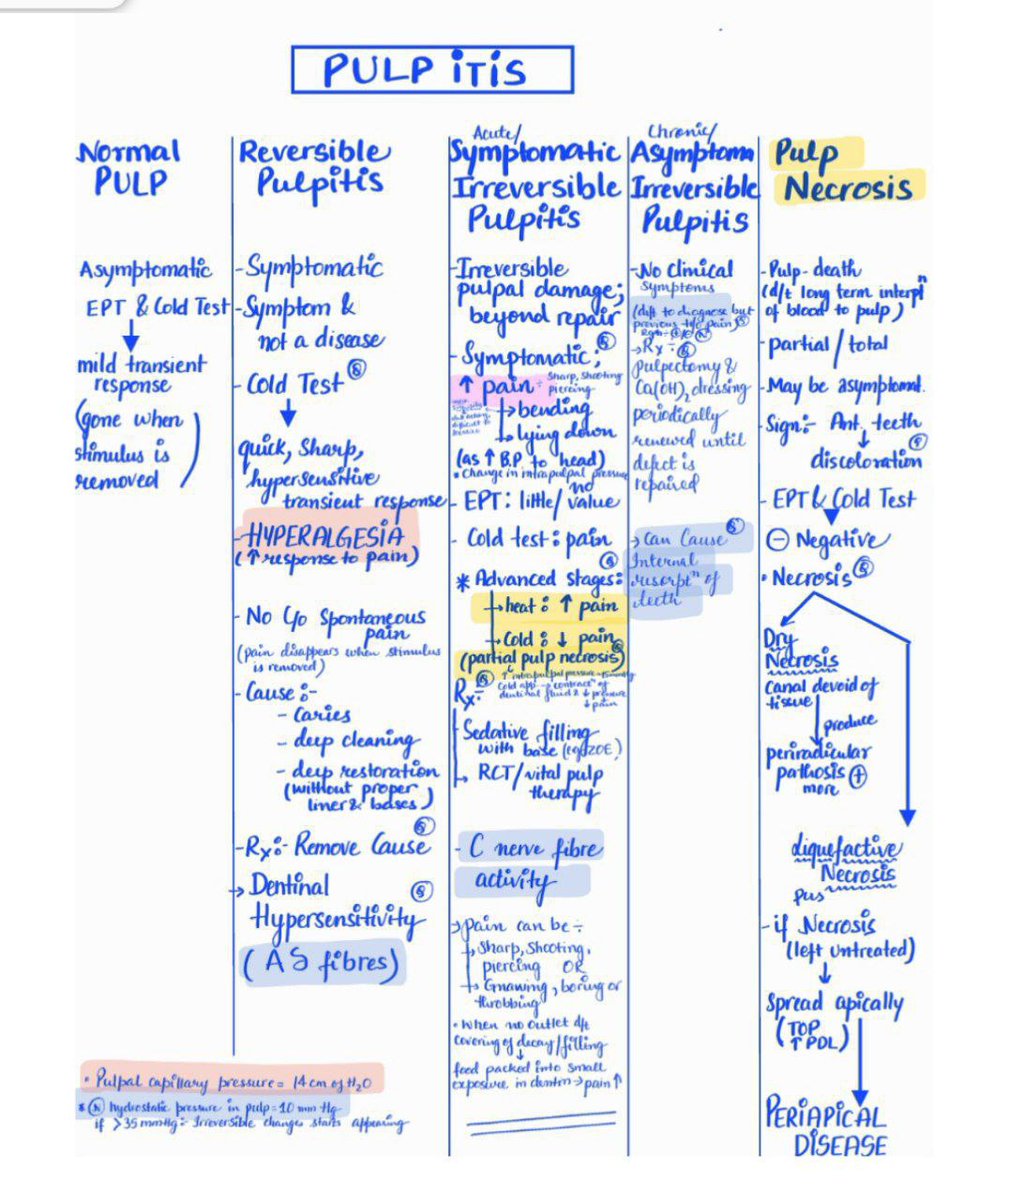 PULPITIS
Normal
PULP
Asymptomatic
EPT & Cold Test
mild transient
response
(gone when
stimulus is
removed)
Reversible
Pulpitis
-Symptomatic
-Symptom &
not a disease
-Cold Test
quick, Sharp,
hypersensitive
transient response
-HYPERALGESIA
(↑response to pain)
-No c/o Spontaneous
pain
(pain disappears when stimulus
is removed)
-Cause:-
- Caries
- deep cleaning
- deep restoration
(without proper
liner & bases)
-Rx:- Remove Cause
→ Dentinal
Hypersensitivity
(Aδ fibres)
Acute/
Symptomatic
Irreversible
Pulpitis
-Irreversible
pulpal damage;
beyond repair
-Symptomatic;
↑ pain÷ Sharp, Shooting
piercing
→bending
→lying down
(as ↑ B.P to head)
•Change in intrapulpal pressure
- EPT: little/no value
- Cold test: pain
* Advanced Stages:
→heat: ↑ pain
→Cold: ↓ pain
(partial pulp necrosis)
Cold app → contractn of
dentinal fluid & ↓ pressure
↓ pain
Rx÷
Sedative filling
with base (eg/ZOE)
→ RCT/vital pulp
therapy
- C nerve fibre
activity
→Pain can be÷
→Sharp, Shooting,
piercing OR
→ Gnawing, boring or
throbbing
•When no outlet d/t
covering of decay/filling
↓
food packed into small
exposure in dentin→pain↑
Chronic/
Asymptom
Irreversible
Pulpitis
-No Clinical
Symptoms
(diff to diagnose but
previous h/o pain)
→Rx÷
pulpectomy &
Ca(OH)2 dressing
periodically
renewed until
defect is
repaired
→ Can Cause
Internal
resorptn of
teeth
Pulp
Necrosis
-Pulp-death
(d/t long term interpn
of blood to pulp)
-partial/total
-May be asymptomat.
-Sign:- Ant. teeth
↓
discoloration
- EPT & Cold Test
⊖ Negative
• Necrosis
Dry
Necrosis
Canal devoid of
tissue
produce
periradicular
pathosis ⊕
more
liquefactive
Necrosis
pus
-if Necrosis
(left untreated)
↓
Spread apically
(TOP
↑PDL)
PERIAPICAL
DISEASE
• Pulpal capillary pressure= 14 cm of H2O
* (N) hydrostatic pressure in pulp=10 mm Hg
if >35 mmHg÷ Irreversible changes starts appearing